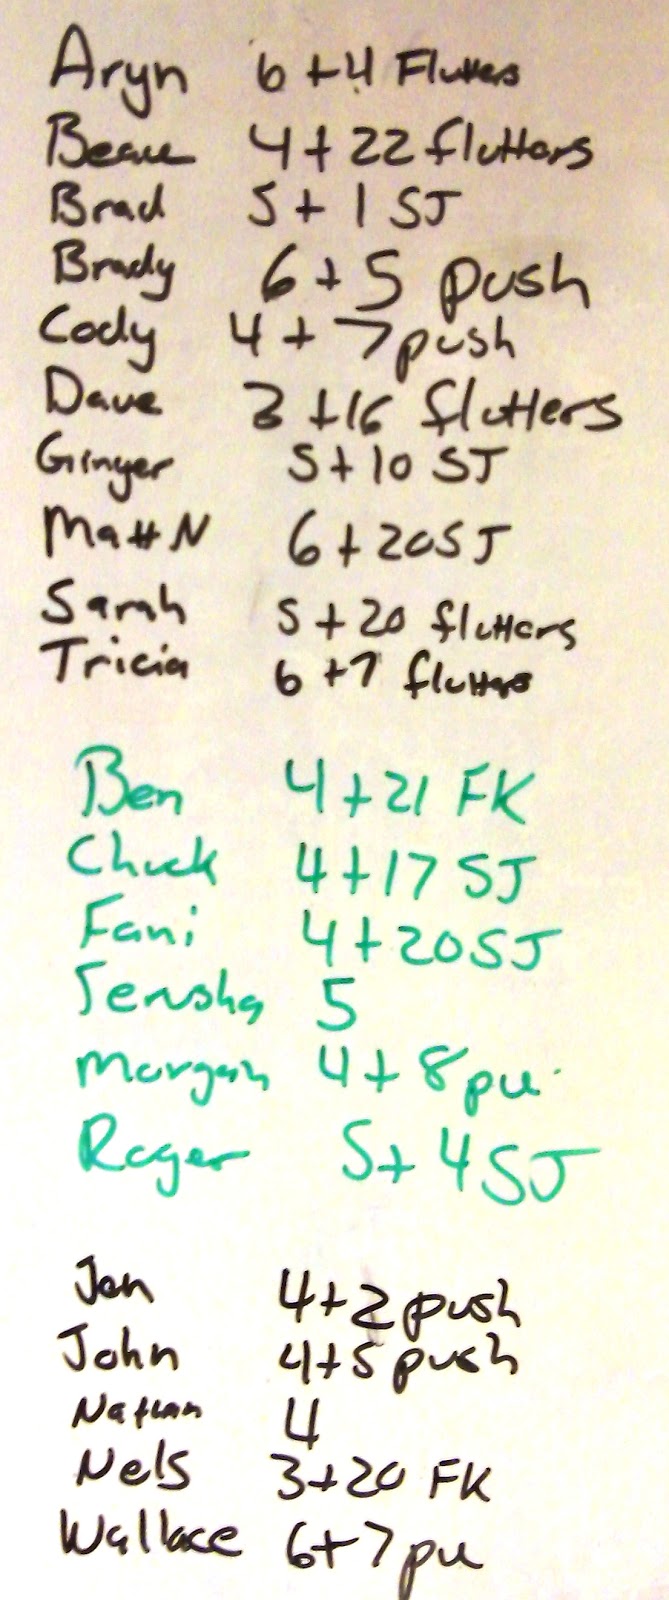 Aryn 6 + 4 Flutters
Beau 4 + 22 flutters
Brad 5 + 1 SJ
Brady 6 + 5 push
Cody 4 + 7 push
Dave 3 + 16 flutters
Ginger 5 + 10 SJ
Matt N 6 + 20 SJ
Sarah 5 + 20 flutters
Tricia 6 + 7 flutters
Ben 4 + 21 FK
Chuck 4 + 17 SJ
Fani 4 + 20 SJ
Jerusha 5
Morgan 4 + 8 pu
Roger 5 + 4 SJ
Jen 4 + 2 push
John 4 + 5 push
Nathan 4
Nels 3 + 20 FK
Wallace 6 + 7 pu